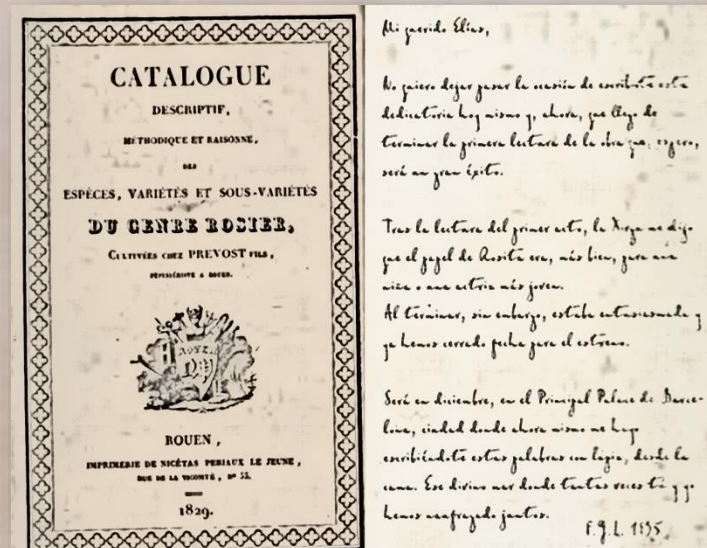 CATALOGUE
DESCRIPTIF,
MÉTHODIQUE ET RAISONNÉ,
DES
ESPÈCES, VARIÉTÉS ET SOUS-VARIÉTÉS
DU GENRE ROSIER,
CULTIVÉES CHEZ PREVOST FILS,
PÉPINIÉRISTE A ROUEN.
ROUEN,
IMPRIMERIE DE NICÉTAS PERIAUX LE JEUNE,
RUE DE LA VICOMTÉ, Nº 55.
1829.
Mi querido Elías,
No quiero dejar pasar la ocasión de escribirte esta
dedicatoria hoy mismo y, ahora, que llego de
terminar la primera lectura de la obra que, espero,
será un gran éxito.
Tras la lectura del primer acto, la Xirgu me dijo
que el papel de Rosita era, más bien, para una
niña o una actriz más joven.
Al terminar, sin embargo, estaba entusiasmada y
ya hemos cerrado fecha para el estreno.
Será en diciembre, en el Principal Palace de Barce-
lona, ciudad donde ahora mismo me hayo
escribiéndote estas palabras con lápiz, desde la
cama. Ese divino mar donde tantas veces tú y yo
hemos naufragado juntos.
F.G.L. 1935